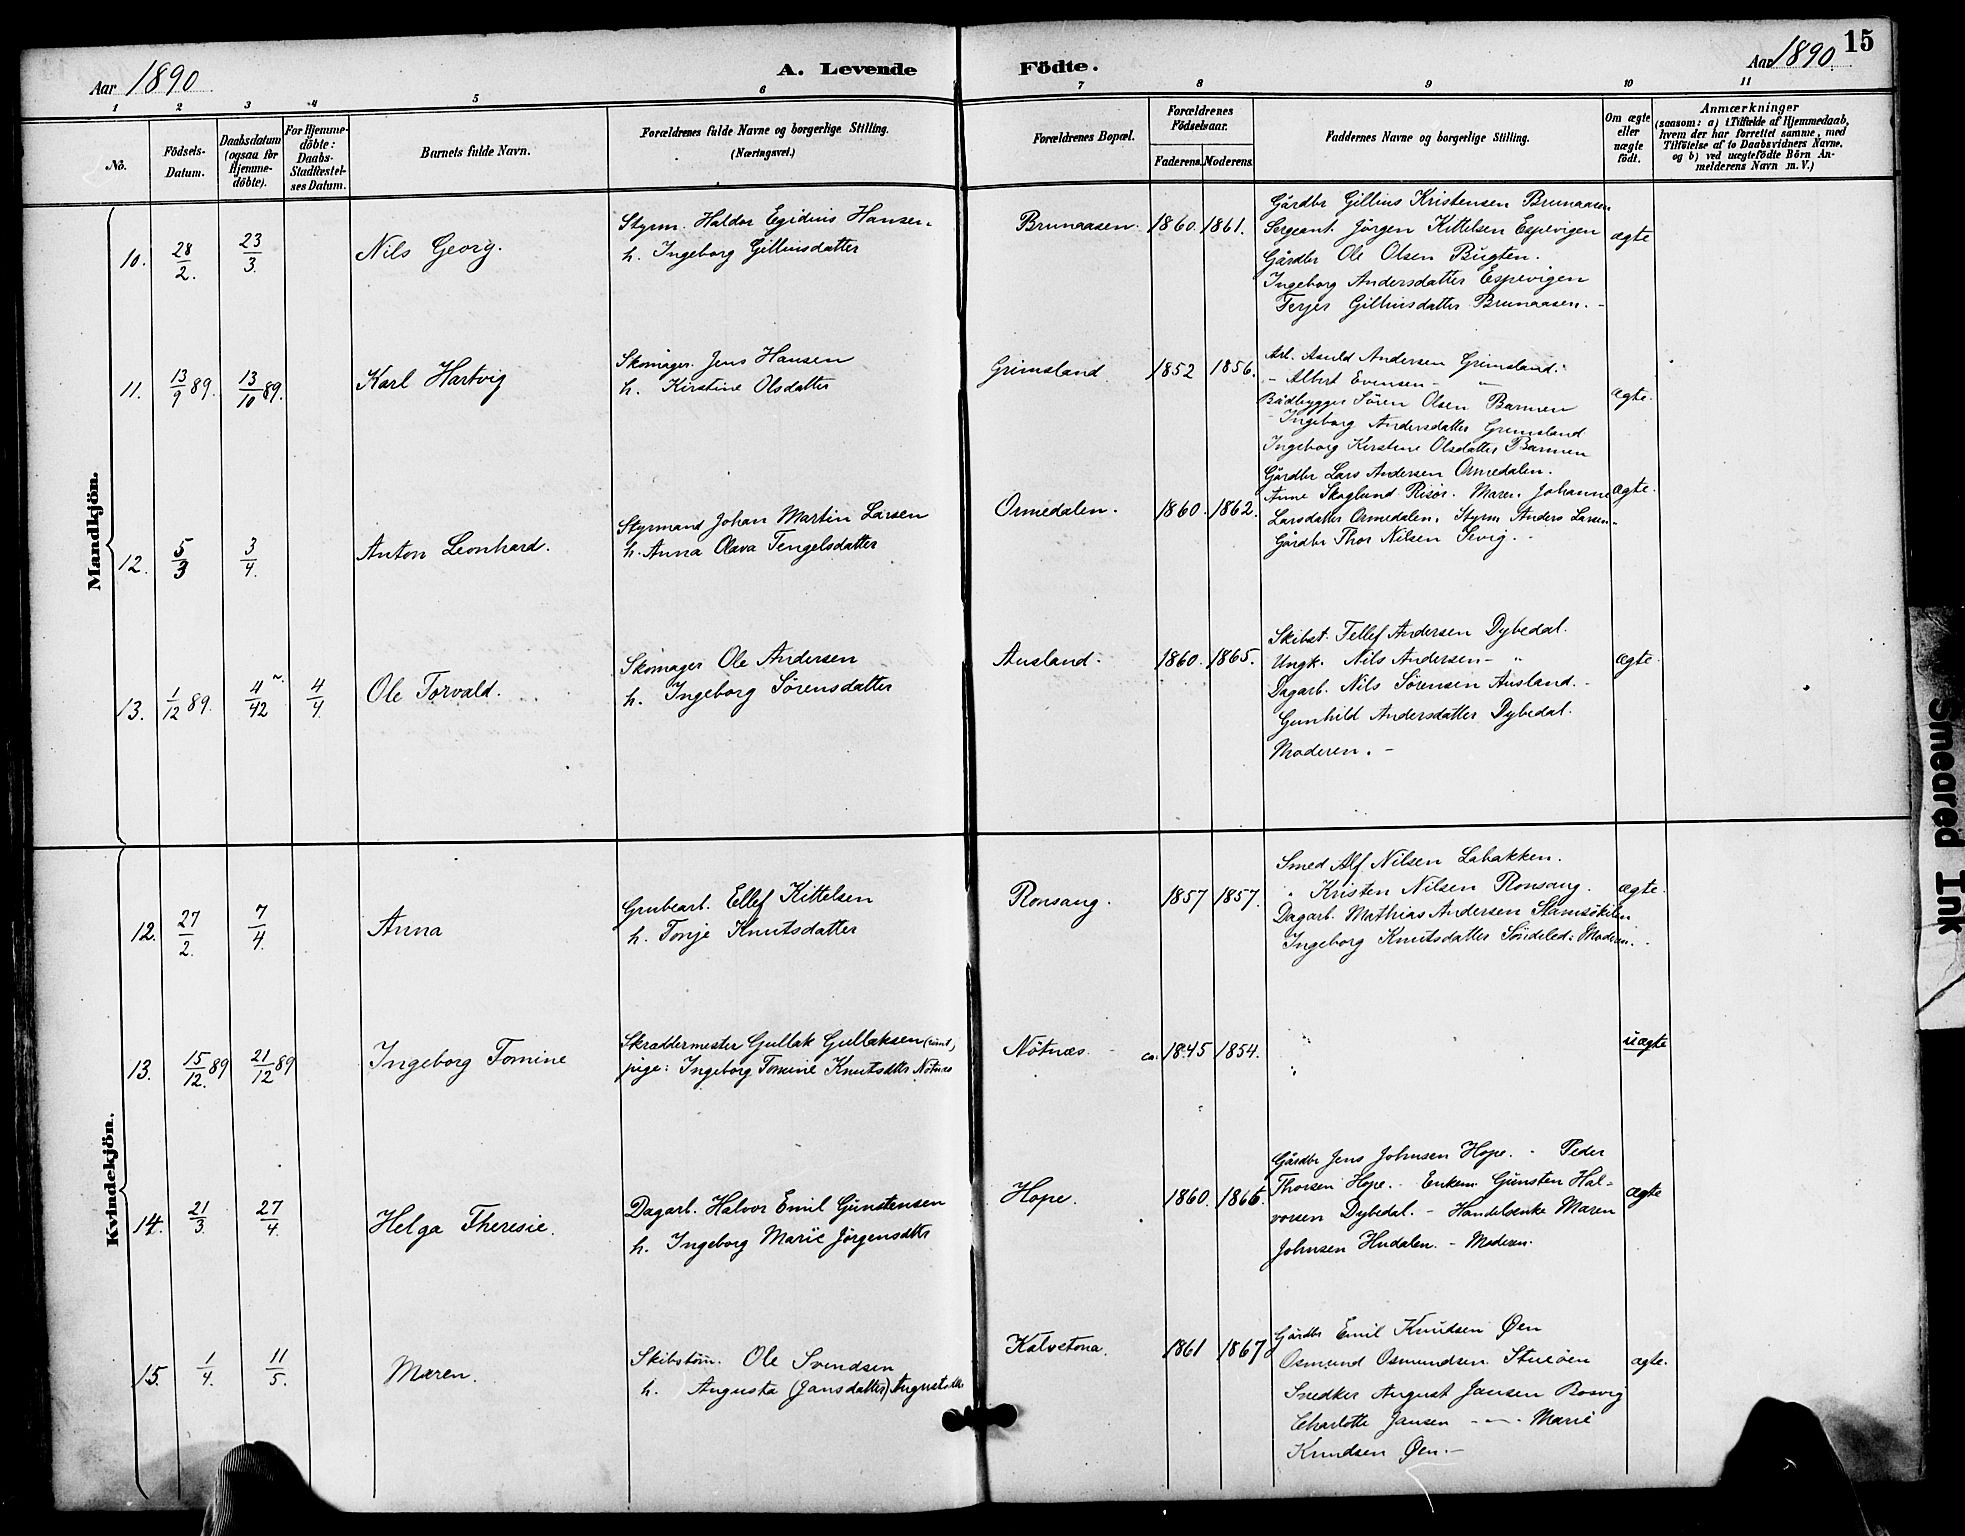 15
Aar 1890
A. Levende Födte.
Aar 1890
1 2 3 4 5 6 7 8 9 10 11
No.
Födsels-
Datum.
Daabsdatum
(ogsaa for
Hjemme-
döbte).
For Hjemme-
döbte:
Daabs-
Stadfæstel-
ses Datum.
Barnets fulde Navn.
Forældrenes fulde Navne og borgerlige Stilling.
(Næringsvei.)
Forældrenes Bopæl.
Forældrenes
Födselsaar.
Faderens. Moderens.
Faddernes Navne og borgerlige Stilling.
Om ægte
eller
uægte
födt.
Anmærkninger
(saasom: a) i Tilfælde af Hjemmedaab,
hvem der har forrettet samme, med
Tilföielse af to Daabsvidners Navne,
og b) ved uægtefödte Börn An-
melderens Navn m. V.)
Mandkjön.
10. 28/2. 23/3. Nils Georg.
Styrm. Haldor Egidius Hansen.
h. Ingeborg Gilliusdatter
Brunaasen. 1860. 1861.
Gårdbr Gillius Kristensen Brunaasen
Sergeant. Jörgen Kittelsen Espevigen
Gårdbr Ole Olsen Bugten.
Ingeborg Andersdatter Espevigen
Terjer Gilliusdatter Brunaasen. -
ægte
11. 13/9 89. 13/10 89. Karl Hartvig
Skomager. Jens Hansen
h. Kirstine Olsdatter
Grimsland 1852 1856.
Arb. Asuld Andersen Grimsland.
- Albert Evensen - "
Bådbygger Sören Olsen Barmen
Ingeborg Andersdatter Grimsland
Ingeborg Kirstine Olsdatter Barmen
ægte.
12. 5/3 3/4. Anton Leonhard.
Styrmand Johan Martin Larsen
h. Anna Olava Tengelsdatter
Ormedalen. 1860. 1862.
Gårdbr Lars Andersen Ormedalen.
Anne Skoglund Risör. Maren Johanne
Larsdatter Ormedalen. Styrm Anders Larsen.
Gårdbr Thor Nilsen Sevig. -
ægte.
13. 1/12 89. 4/42 4/4 Ole Torvald.
Skomager Ole Andersen
h. Ingeborg Sörensdatter
Ausland. 1860. 1865.
Skibst. Tellef Andersen Dybedal.
Ungk. Nils Andersen - "
Dagarb. Nils Sörensen Ausland. -
Gunhild Andersdatter Dybedal.
Moderen. -
ægte.
Kvindekjön.
12. 27/2. 7/4. Anna
Grubearb. Ellef Kittelsen
h. Tonje Knutsdatter
Ronsang. 1857 1857.
Smed Alf Nilsen Labakken.
" Kristen Nilsen Ronsang.
Dagarb. Mathias Andersen Stamsökilen
Ingeborg Knutsdatter Söndeled: Moderen.
ægte.
13. 15/12. 89 21/12 89 Ingeborg Tomine
Skræddermester Gullak Gullaksen
pige: Ingeborg Tomine Knutsdtr Nötnæs
Nötnæs. ca. 1845 1854.
uægte
14. 21/3 27/4. Helga Theresie.
Dagarb. Halvor Emil Gunstensen
h. Ingeborg Marie Jörgensdtr
Hope. 1860. 1866.
Gårdbr Jens Johnsen Hope. - Peder
Thorsen Hope. - Enkem. Gunsten Hal-
vorsen Dybedal. - Handelsenke Maren
Johnsen Hudalen. - Moderen.
ægte
15. 1/4. 11/5. Maren.
Skibstöm. Ole Svendsen
h. Augusta (Jansdatter) Augustdtr
Kalvstona. 1861 1867
Gårdbr Emil Knudsen Øen
Osmund Osmundsen Stueöen
Snedker August Jansen Bosvig
Charlotte Jansen - " - Marie
Knudsen Øen. -
ægte.
Smeared Ink